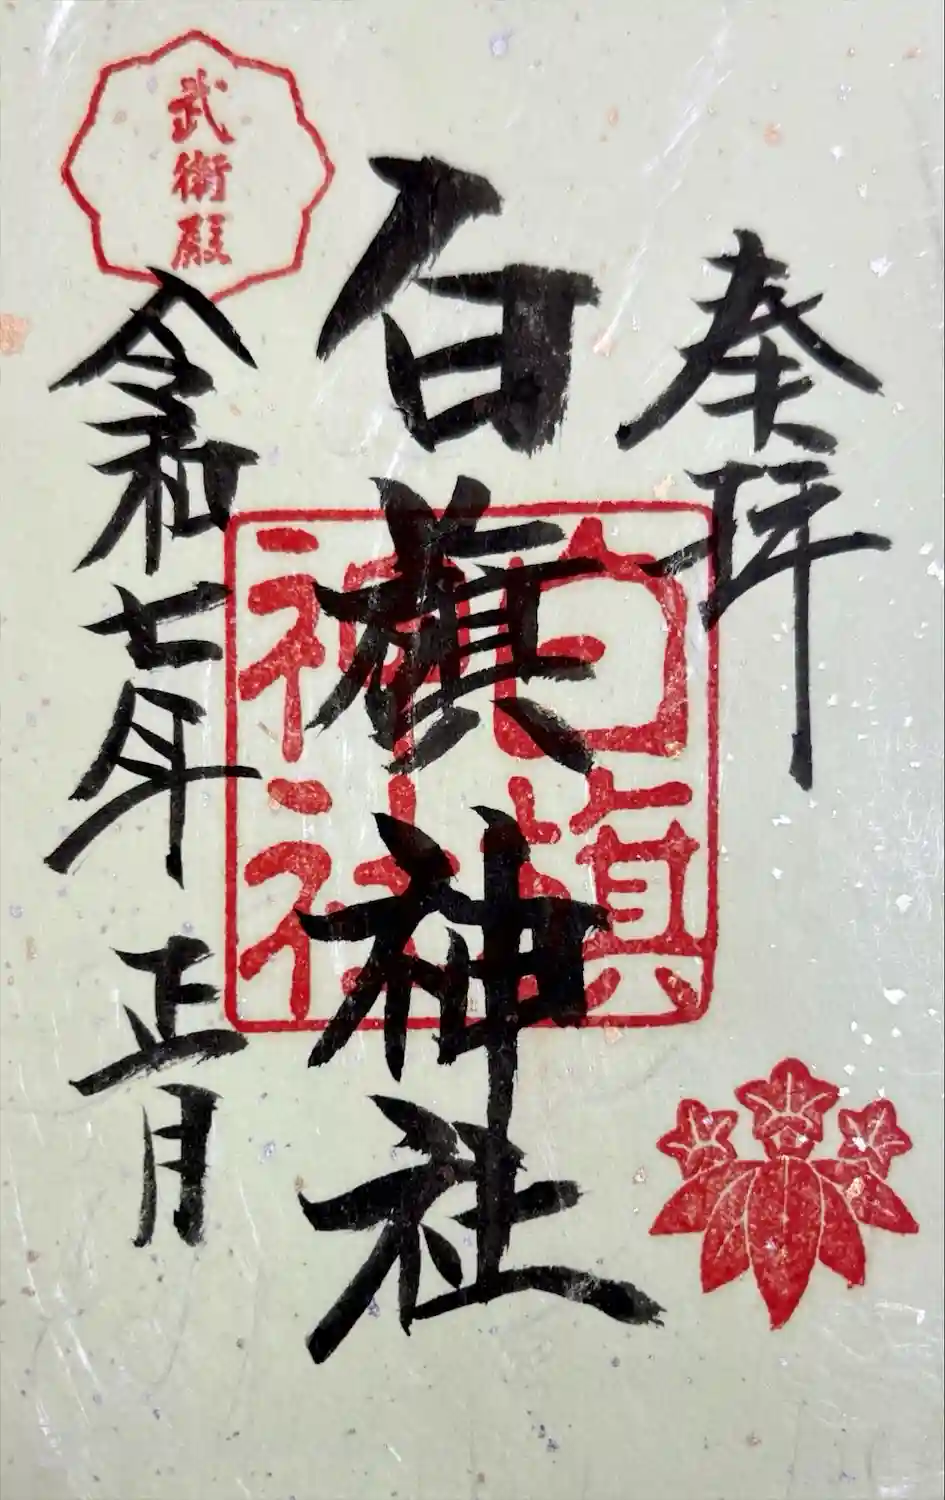 奉拝
白旗神社
白旗神社
武衛殿
令和七年 正月